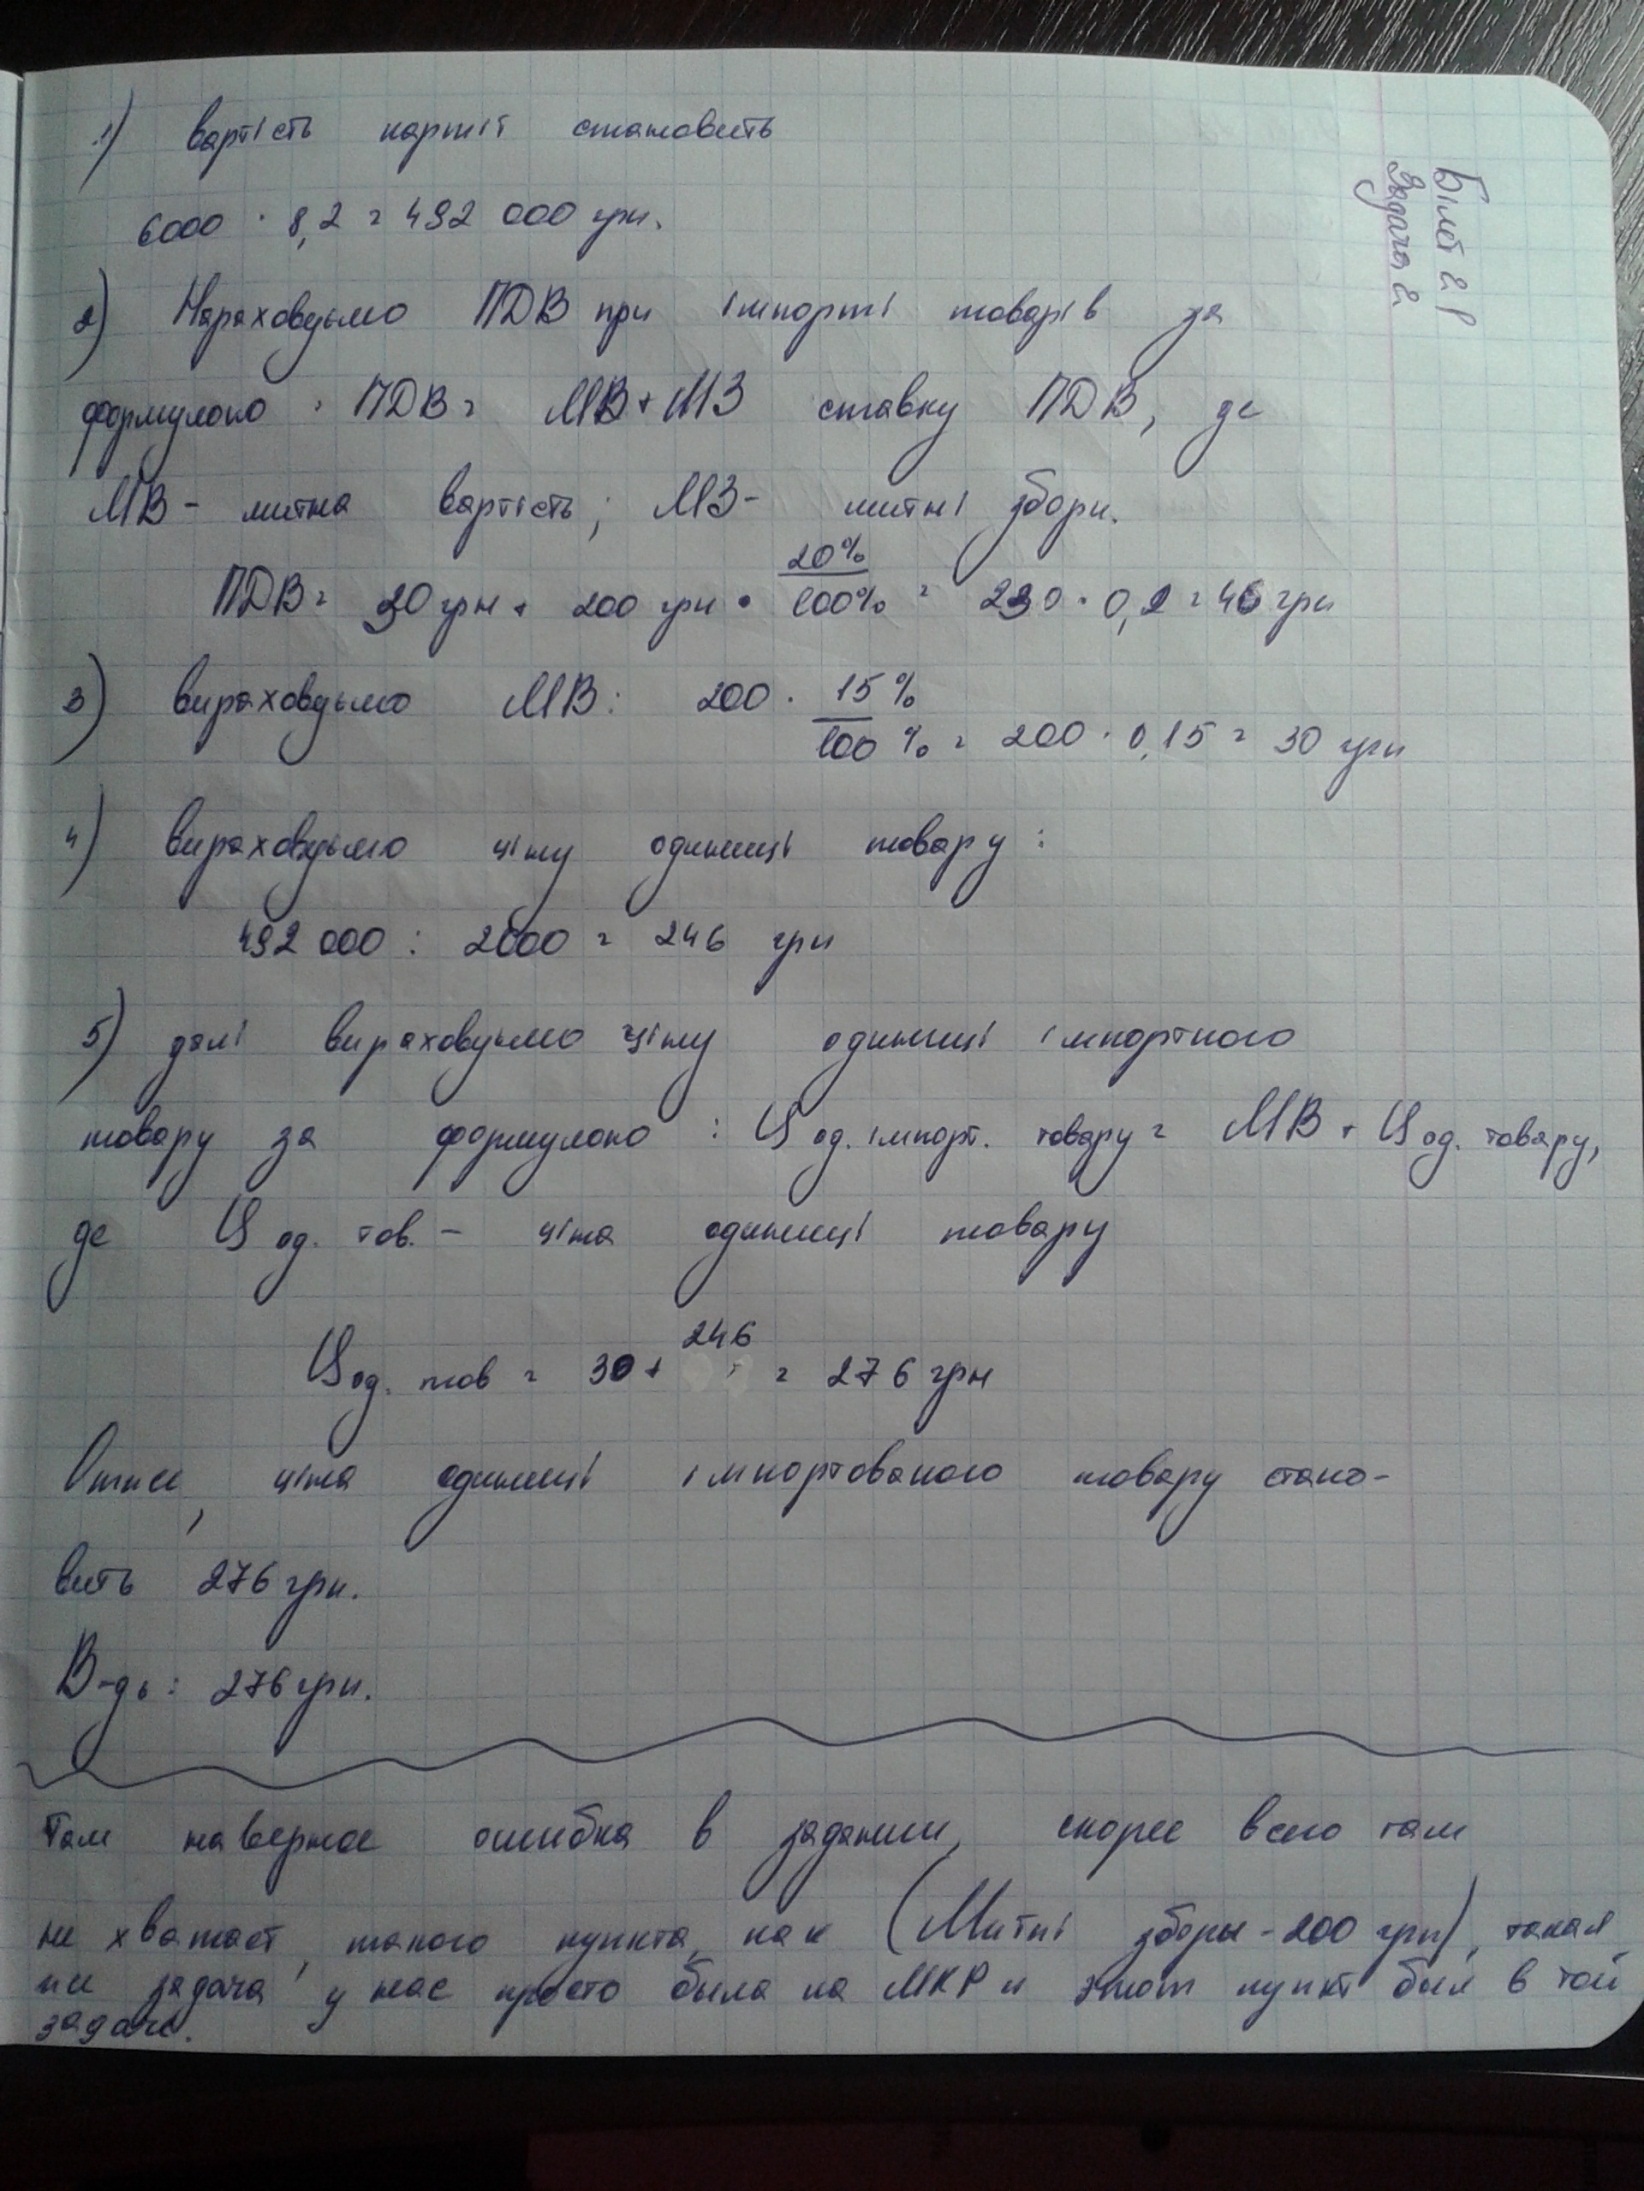 1) вартість партії становить
6000 · 8,2 = 492 000 грн.
2) Нараховуємо ПДВ при імпорті товарів за
формулою: ПДВ = МВ + МЗ ставку ПДВ, де
МВ - митна вартість; МЗ - митні збори.
ПДВ = 30 грн + 200 грн · 20% / 100% = 230 · 0,2 = 46 грн
3) вираховуємо МВ: 200 · 15% / 100% = 200 · 0,15 = 30 грн
4) вираховуємо ціну одиниці товару:
492 000 : 2000 = 246 грн
5) далі вираховуємо ціну одиниці імпортного
товару за формулою: Ц од. імпорт. товару = МВ + Ц од. товару,
де Ц од. тов. - ціна одиниці товару
Ц од. тов = 30 + 246 = 276 грн
Отже, ціна одиниці імпортованого товару стано-
вить 276 грн.
В-дь: 276 грн.
Там наверное ошибка в задании, скорее всего там
не хватает такого пункта, как (Митні зборы - 200 грн), такая
же задача у нас просто была на МКР и этот пункт был в той
задаче.
Білет 2
Задача 2